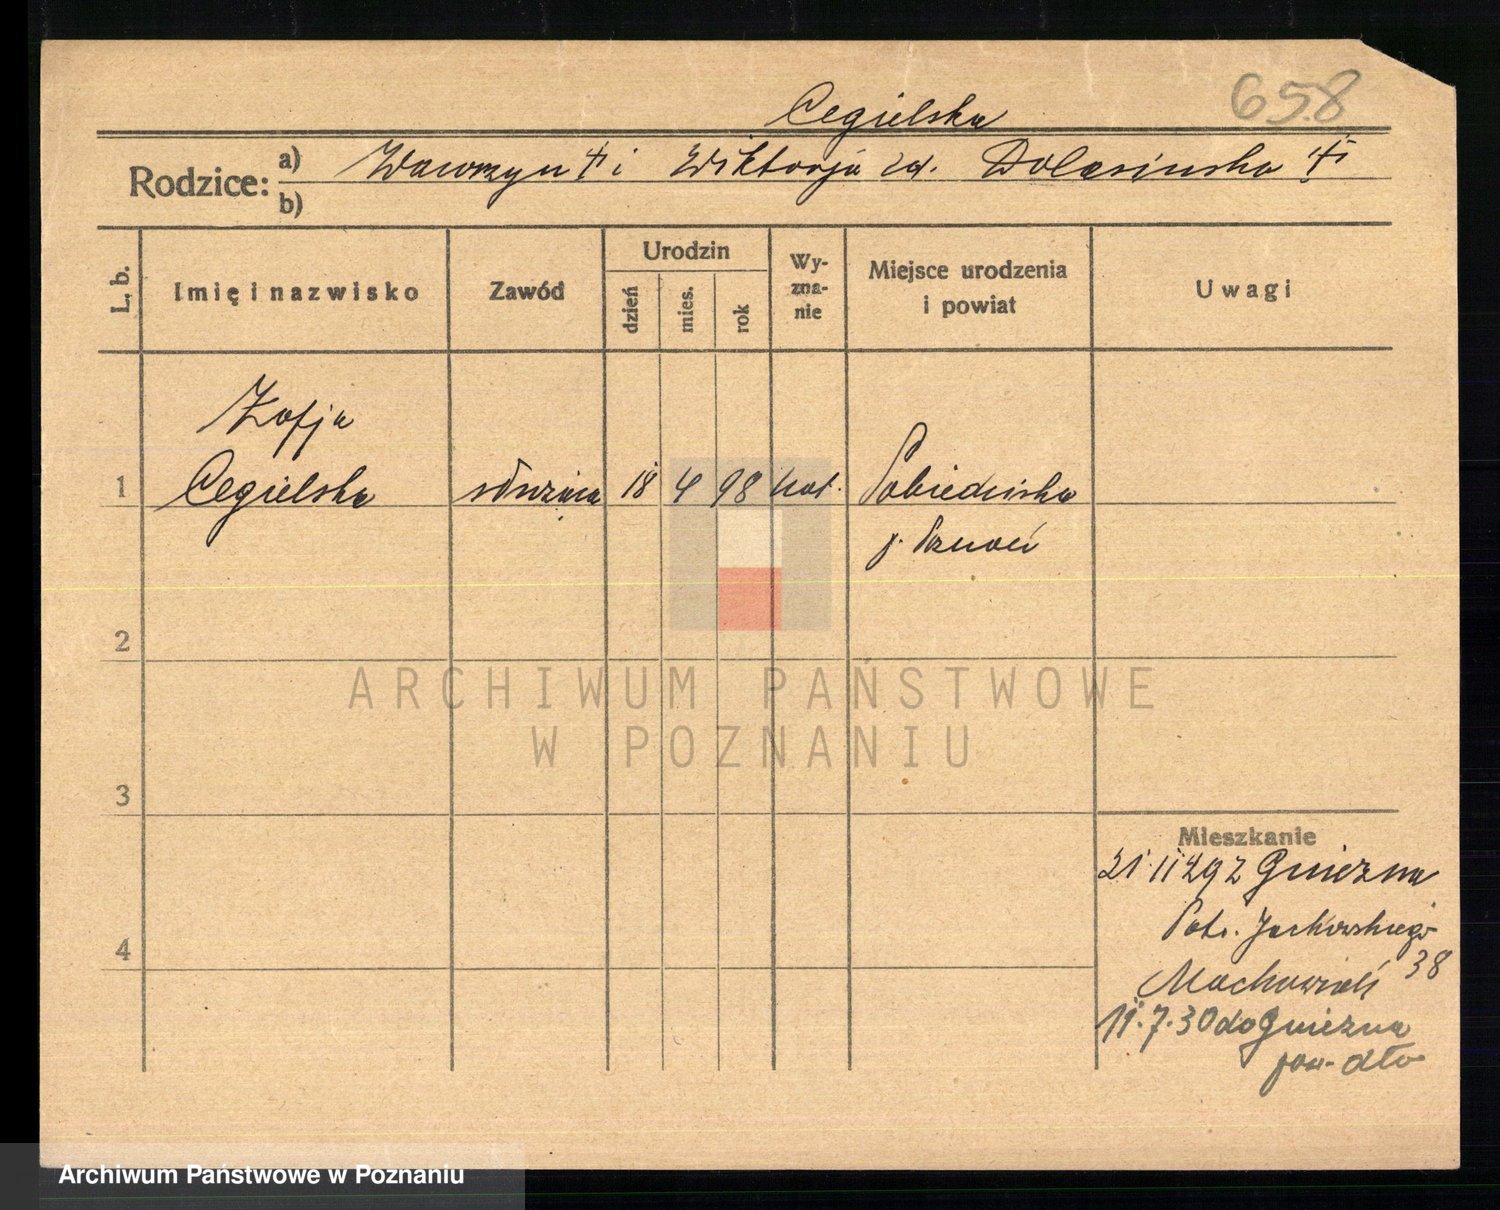 658
Cegielska
Rodzice: a) Wawrzyn † i Wiktorja zd. Dolasinska †
b)
L. b. Imię i nazwisko Zawód Urodzin dzień mies. rok Wyznanie Miejsce urodzenia i powiat Uwagi
Zofja
1 Cegielska służąca 18 4 98 kat. Pobiedziska
p. Poznań
2
ARCHIWUM PAŃSTWOWE
W POZNANIU
3
Mieszkanie
21 11 29 z Gniezna
Patr. Jackowskiego
4 38
Maćkowiak
11.7.30 do Gniezna
Archiwum Państwowe w Poznaniu